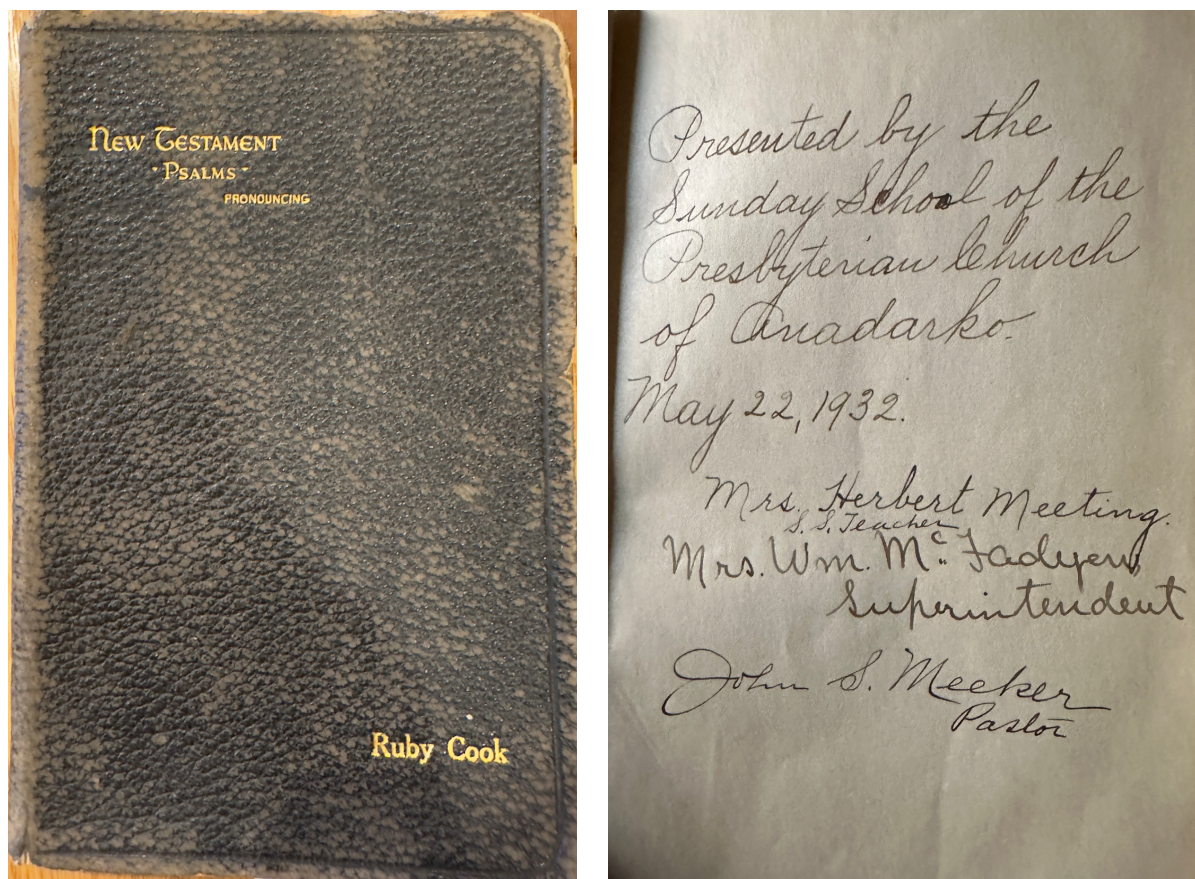 New Testament
- Psalms -
PRONOUNCING
Ruby Cook
Presented by the
Sunday School of the
Presbyterian Church
of Anadarko.
May 22, 1932.
Mrs. Herbert Meeting.
S. S. Teacher
Mrs. Wm. McFadyen
Superintendent
John S. Meeker
Pastor